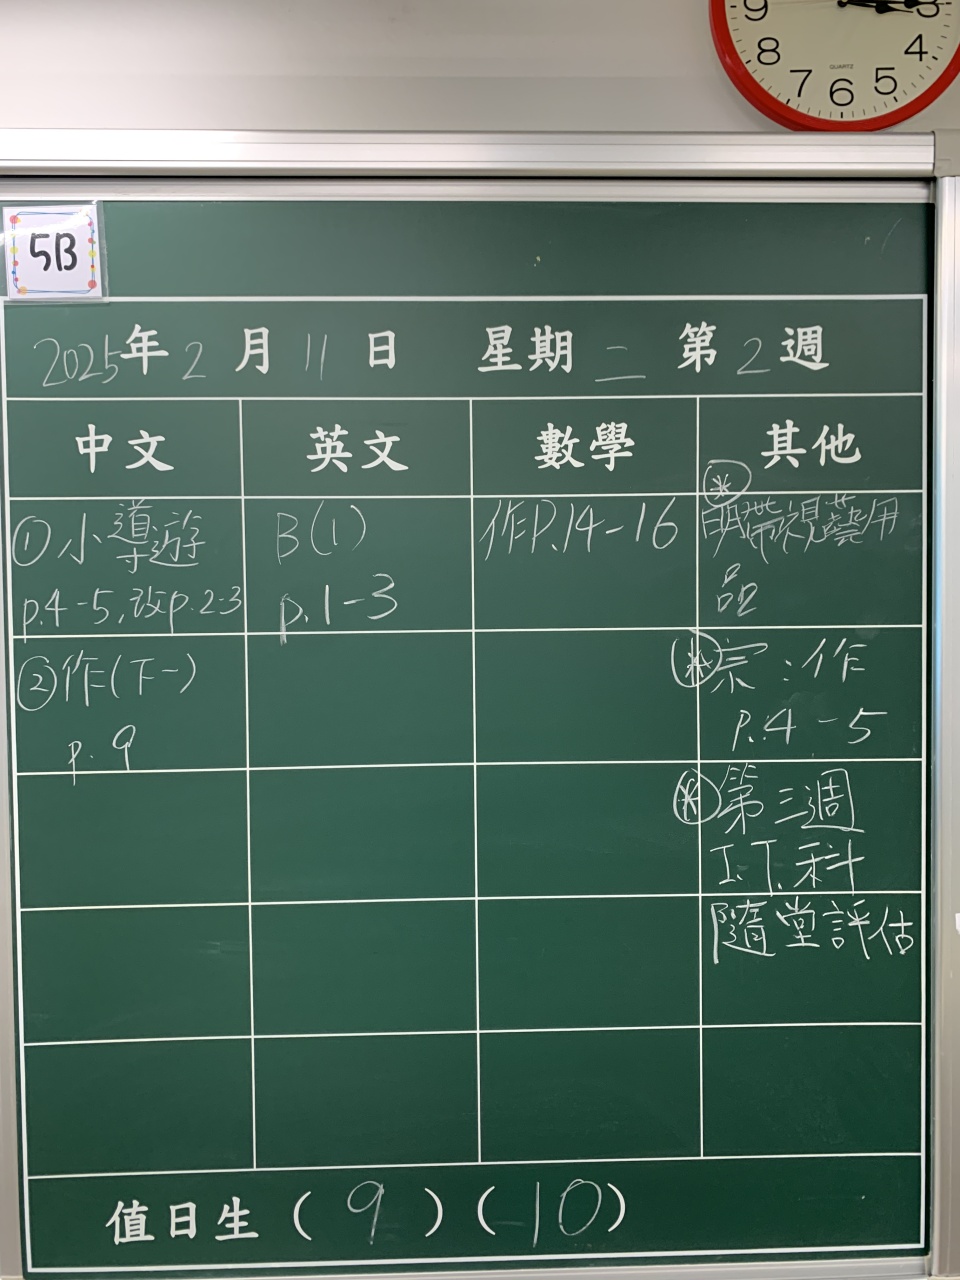 9 3
8 4
7 6 5
QUARTZ
5B
2025年2月11日 星期二 第2週
中文 英文 數學 其他
①小導遊
p.4-5,改p.2-3
②作(下一)
p.9
B(1)
p.1-3
作P.14-16
* 明帶視藝用
品
* 宗:作
P.4-5
* 第三週
I.T.科
隨堂評估
值日生(9)(10)